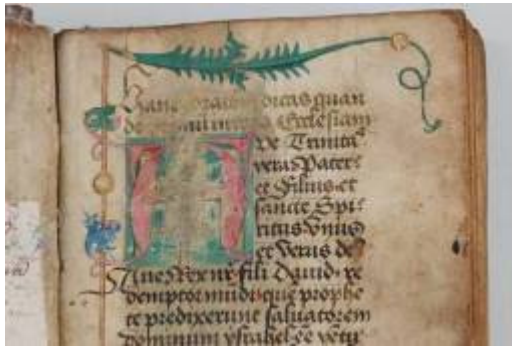 Hanc orationem dicas quan
do Ecclesiam
ve Trinitas
vera Pater
et Filius et
sancte Spi
ritus Vnus
et Verus de
Aue Rex nr̄ fili Dauid re
demptor mundi que prophe
te predixerunt saluatorem
dominum ysrahel ēē ventu